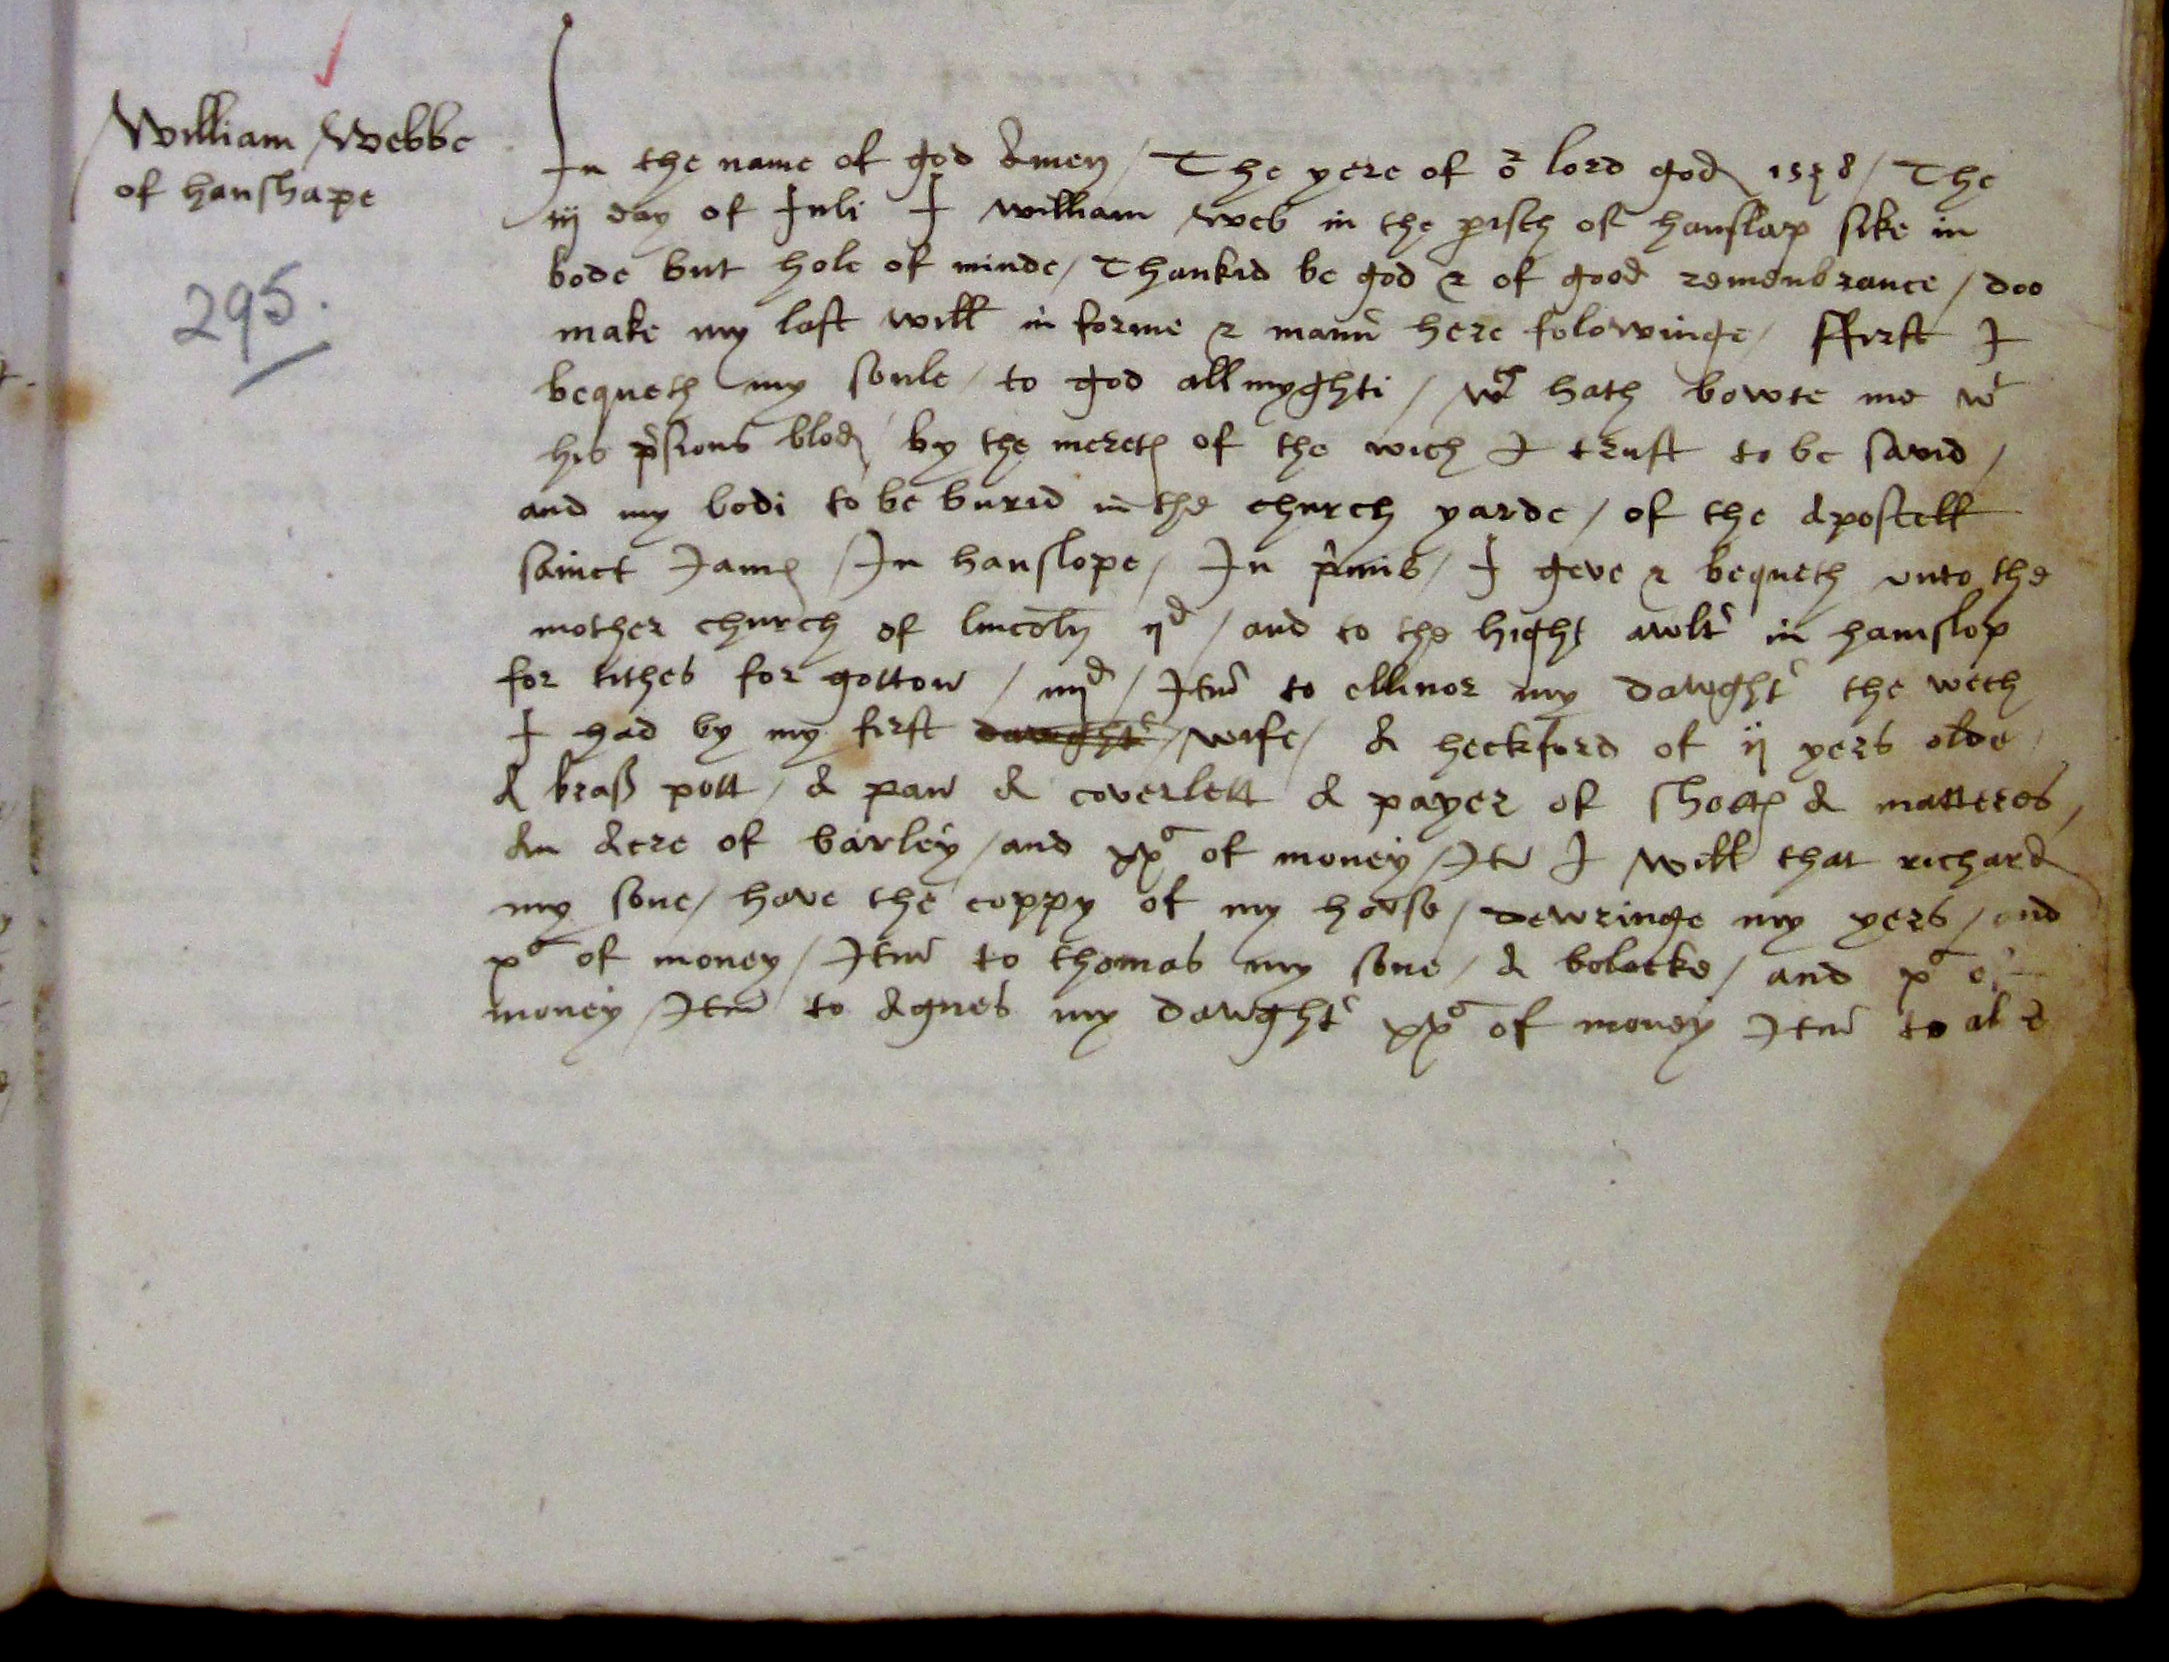 William Webbe
of hanshape
295.
In the name of god Amen / The yere of oʳ lord god 15 8 / The
iij day of Juli I william web in the pisch of hanslap sike in
bode but hole of minde / Thankid be god & of good remenbrance / doo
make my last will in forme & mann' here folowinge / ffirst I
bequeth my soule / to god allmyghti / wch hath bowte me wt
his p'sious blod / by the meretes of the wich I trust to be savid /
and my bodi to be burid in the church yarde / of the Apostell
sainct James / In hanslope / In p'mis / I geve & bequeth unto the
mother church of lincoln ijd / and to the hight awlt' in hamslop
for tithes for gotton / iiijd / Itm to ellinor my dawght' the wech
I had by my first dawght' / wife / A heckford of ij yers olde /
A brass pott / A pan A coverlett A payer of shettes A matteres /
An Acre of barley / and xxs of money / Itm I will that richard
my sone / have the coppy of my howse / dewringe my yers / and
xs of money / Itm to thomas my sone / A bolocke / and xs of
money / Itm to Agnes my dawght' xxs of money Itm to